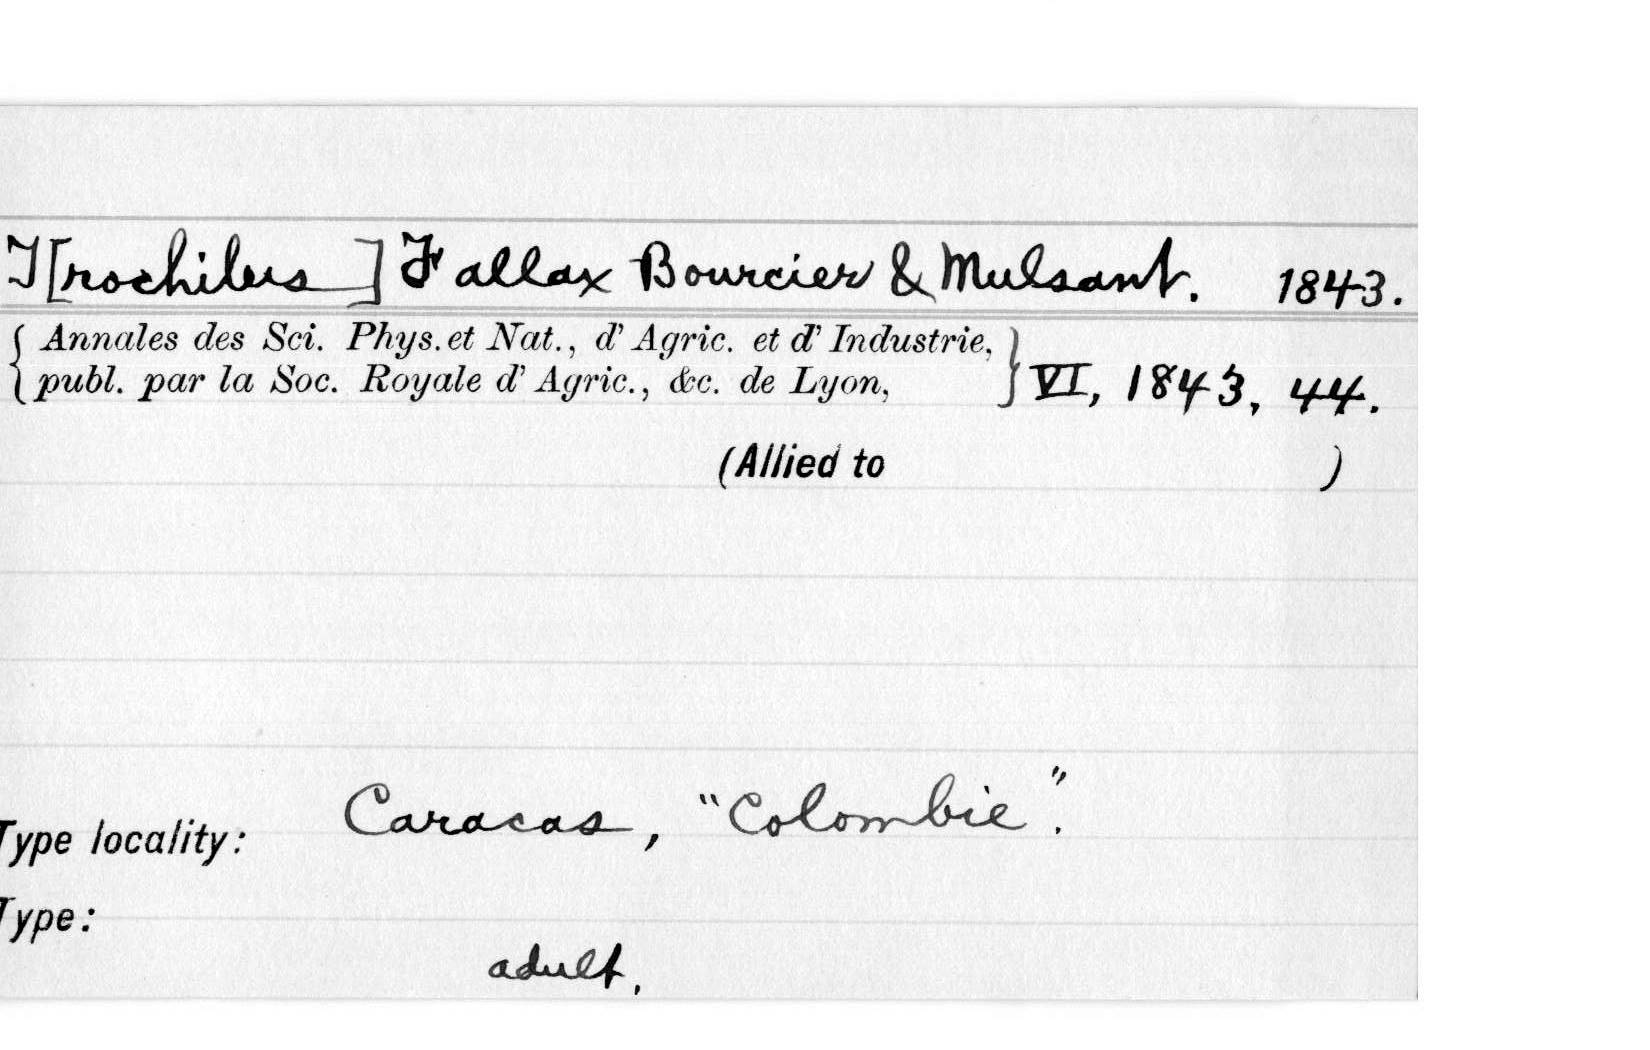 T[rochilus ] Fallax Bourcier & Mulsant. 1843.
{ Annales des Sci. Phys. et Nat., d' Agric. et d' Industrie,
publ. par la Soc. Royale d' Agric., &c. de Lyon, } VI, 1843, 44.
(Allied to )
Type locality: Caracas, "Colombie".
Type:
adult.